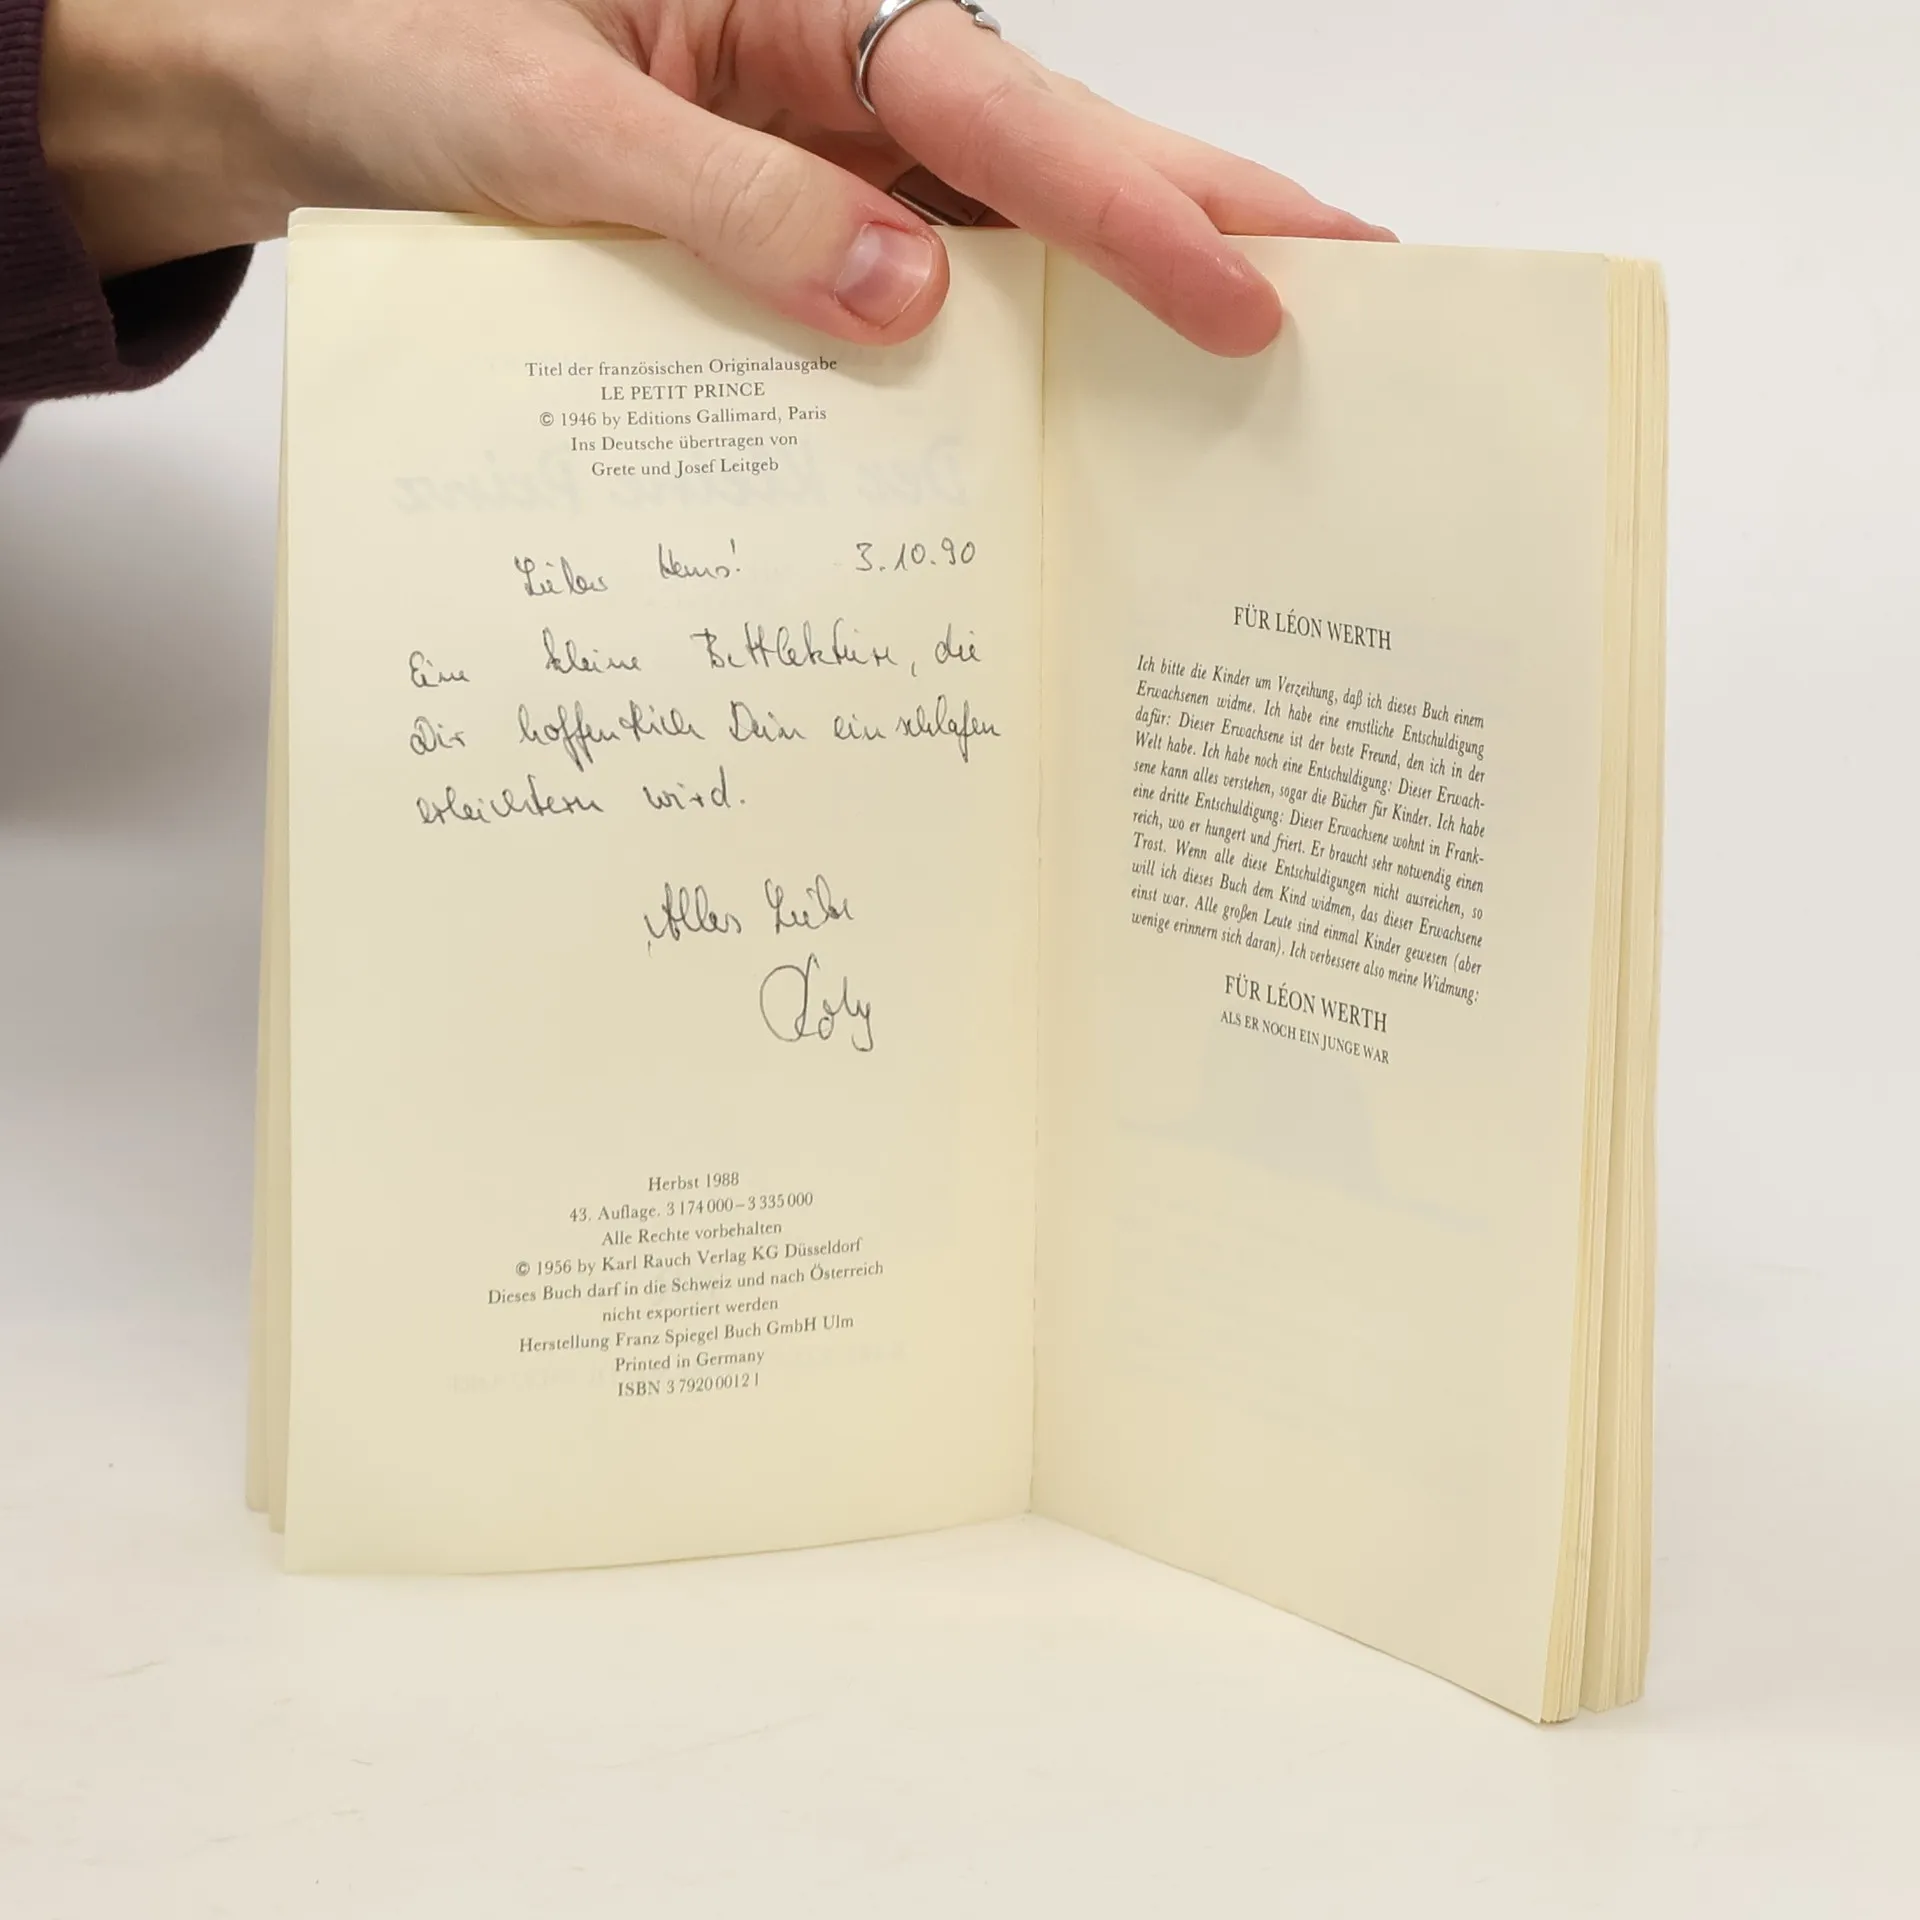 Titel der französischen Originalausgabe
LE PETIT PRINCE
© 1946 by Editions Gallimard, Paris
Ins Deutsche übertragen von
Grete und Josef Leitgeb
Lieber Hans! 3.10.90
Eine kleine Bettlektüre, die
Dir hoffentlich Dein einschlafen
erleichtern wird.
Alles Liebe
Herbst 1988
43. Auflage. 3 174 000–3 335 000
Alle Rechte vorbehalten
© 1956 by Karl Rauch Verlag KG Düsseldorf
Dieses Buch darf in die Schweiz und nach Österreich
nicht exportiert werden
Herstellung Franz Spiegel Buch GmbH Ulm
Printed in Germany
ISBN 3 7920 0012 1
FÜR LÉON WERTH
Ich bitte die Kinder um Verzeihung, daß ich dieses Buch einem
Erwachsenen widme. Ich habe eine ernstliche Entschuldigung
dafür: Dieser Erwachsene ist der beste Freund, den ich in der
Welt habe. Ich habe noch eine Entschuldigung: Dieser Erwach-
sene kann alles verstehen, sogar die Bücher für Kinder. Ich habe
eine dritte Entschuldigung: Dieser Erwachsene wohnt in Frank-
reich, wo er hungert und friert. Er braucht sehr notwendig einen
Trost. Wenn alle diese Entschuldigungen nicht ausreichen, so
will ich dieses Buch dem Kind widmen, das dieser Erwachsene
einst war. Alle großen Leute sind einmal Kinder gewesen (aber
wenige erinnern sich daran). Ich verbessere also meine Widmung:
FÜR LÉON WERTH
ALS ER NOCH EIN JUNGE WAR